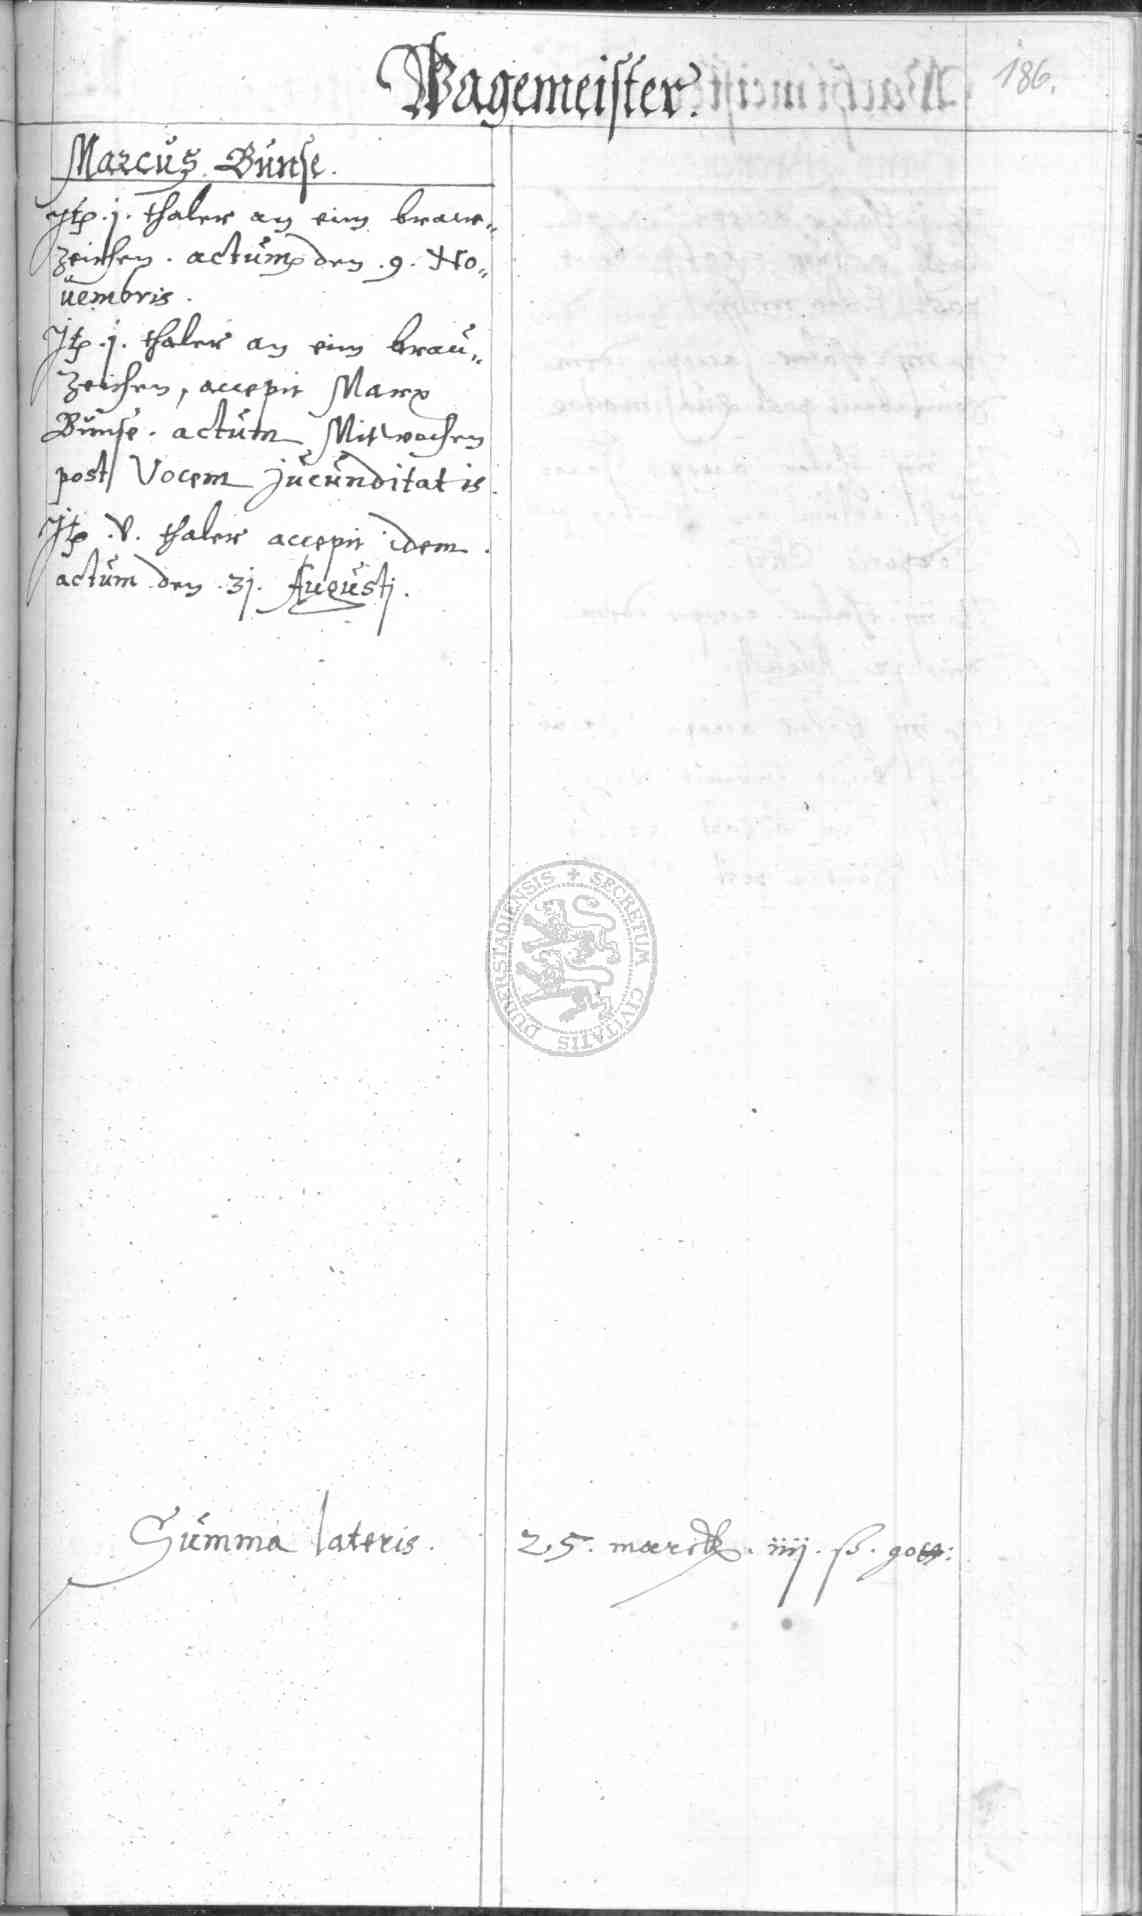 Wagemeister.
186.
Marcus Bunse.
Itp. j. thaler an eim braw„
zeichen. actum den .9. No„
uembris.
Itp. j. thaler an eim brau„
zeichen, accepit Marx
Bunse. actum Mitwochen
post Vocem jucunditatis
Itp .v. thaler accepit idem.
actum den .3j. Augustj.
DUDERSTADIENSIS + SECRETUM CIVITATIS
Summa lateris. 25. marck. iiij. ß.